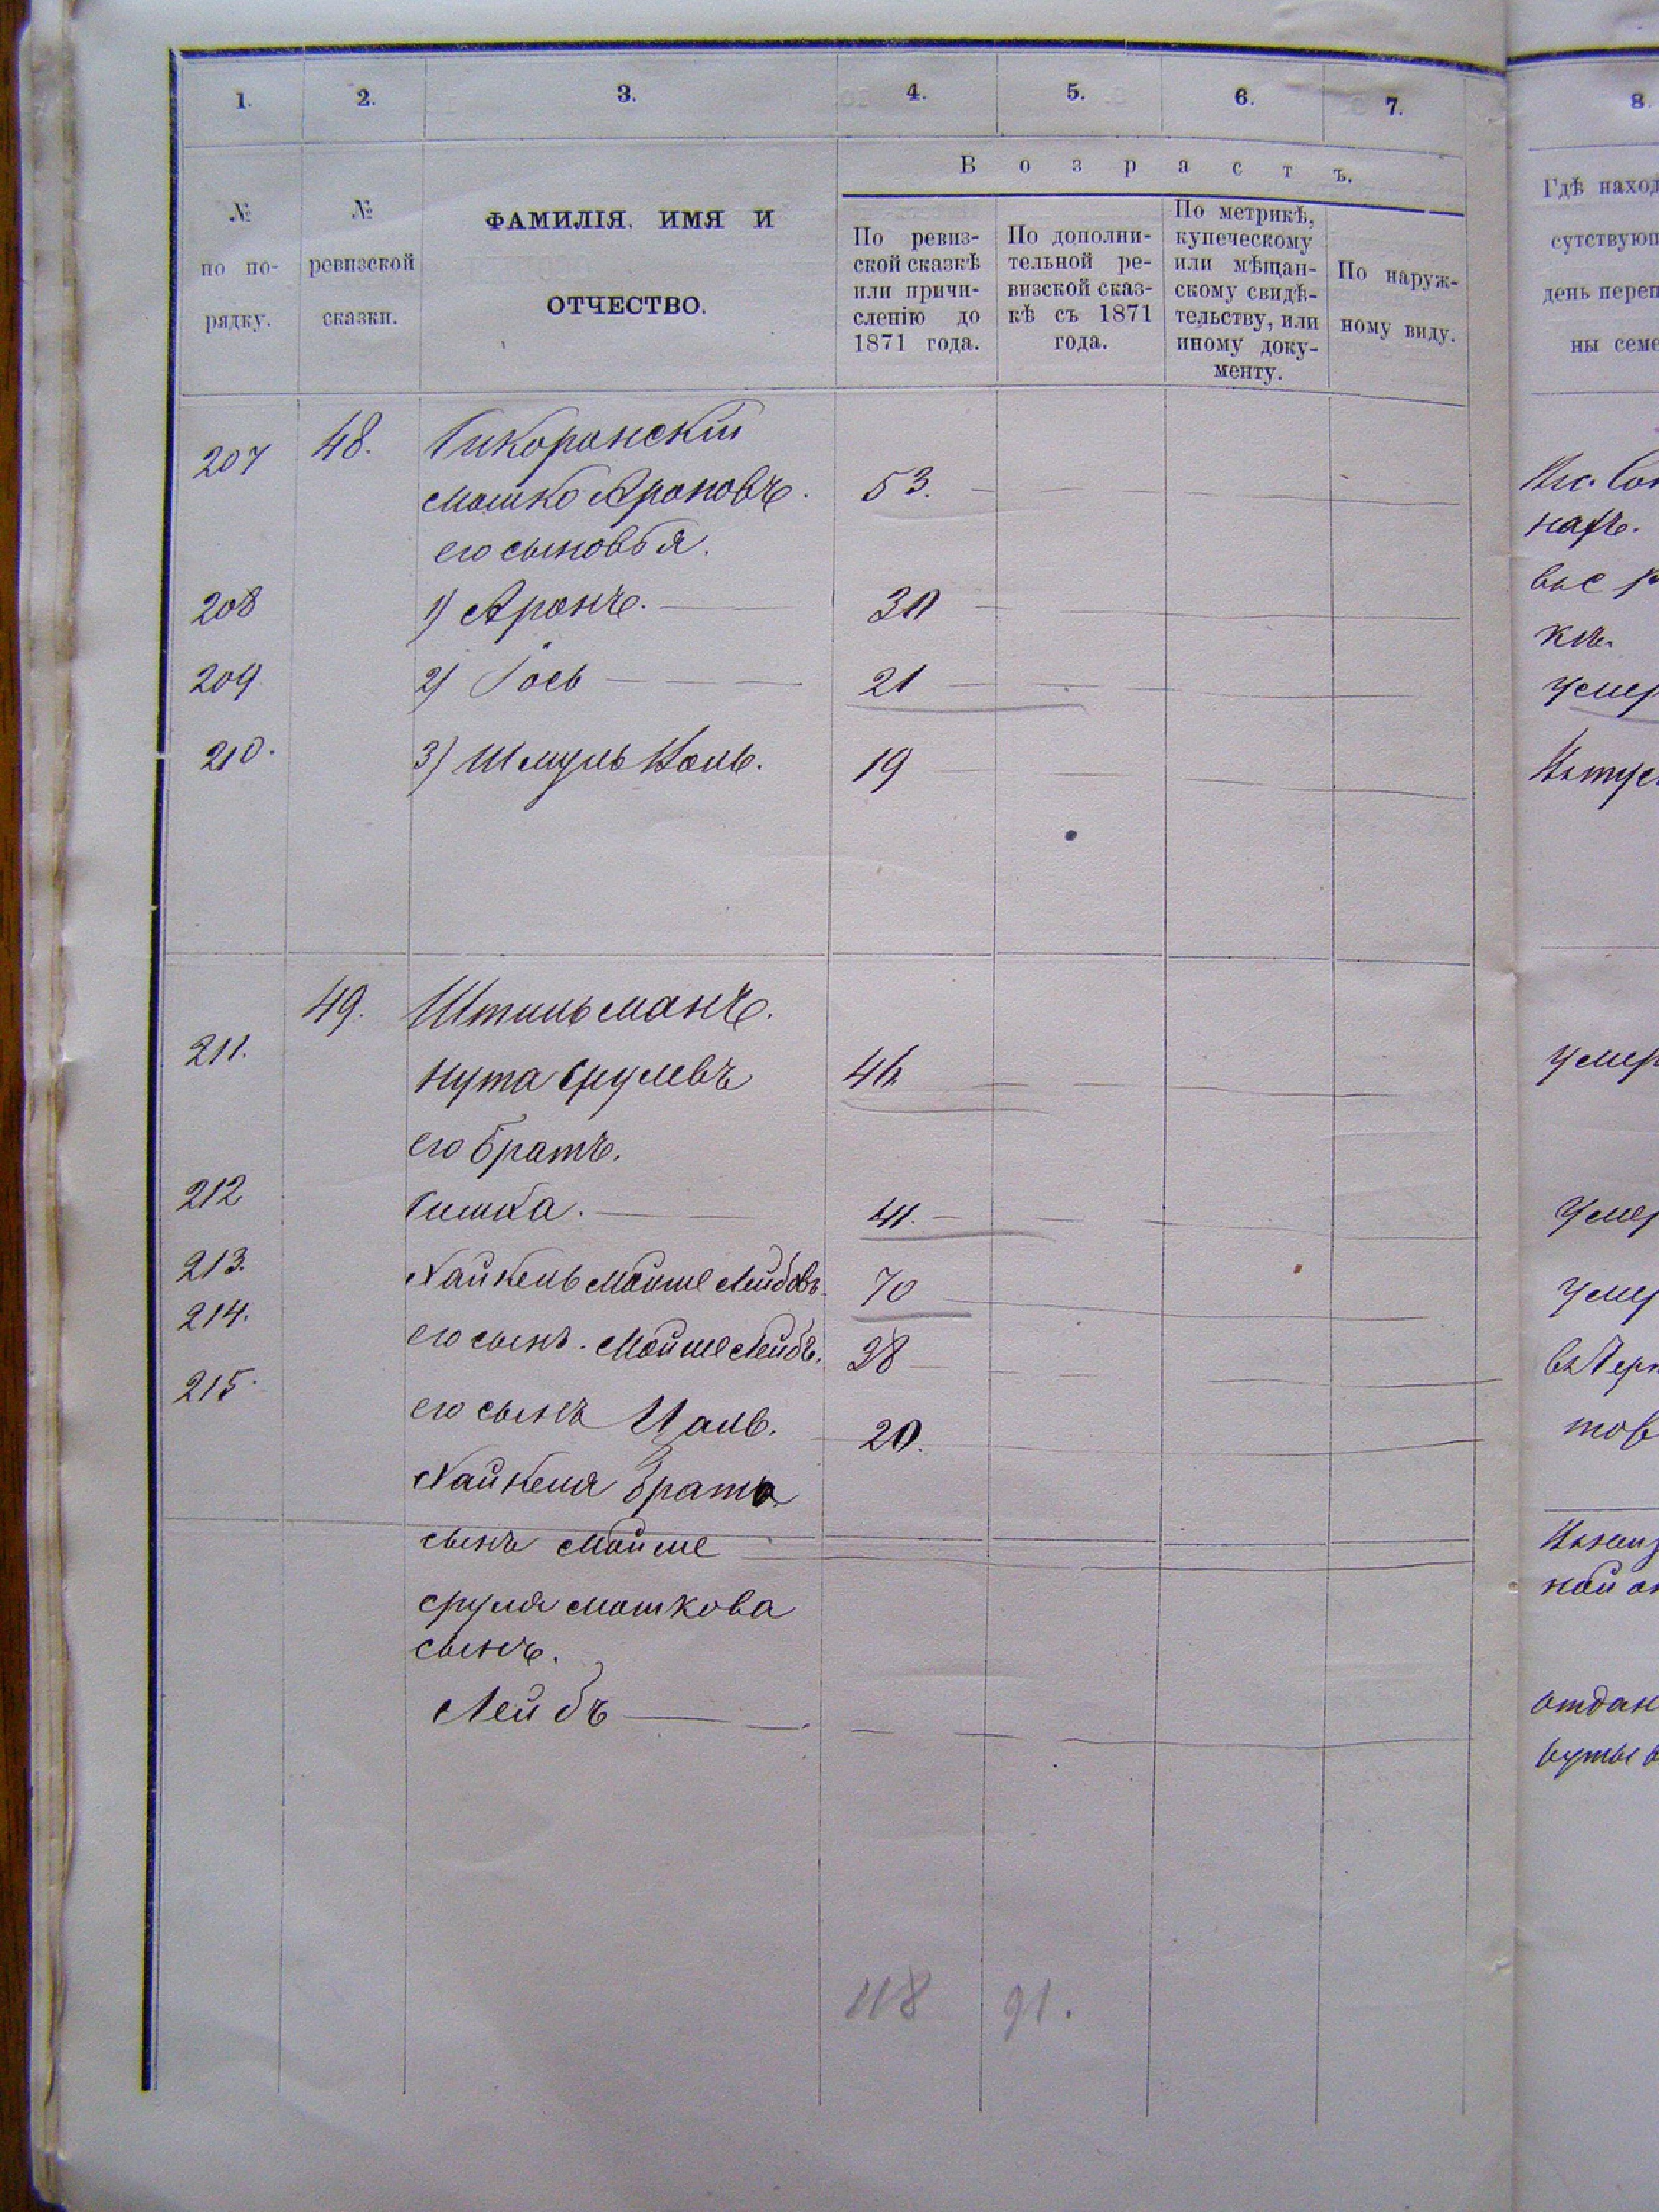 1. 2. 3. 4. 5. 6. 7. 8.
Возрастъ.
№ по по-рядку.
№ ревизской сказки.
ФАМИЛІЯ, ИМЯ И
ОТЧЕСТВО.
По ревиз-
ской сказкѣ
или причи-
сленію до
1871 года.
По дополни-
тельной ре-
визской сказ-
кѣ съ 1871
года.
По метрикѣ,
купеческому
или мѣщан-
скому свидѣ-
тельству, или
иному доку-
менту.
По наруж-
ному виду.
Гдѣ наход
сутствующ
день переп
ны семе
207 48. Сикоранскій
Мошко Ароновъ. 53.
его сыновья.
208 1) Аронъ. 30
209 2) Іось 21
210. 3) Шмуль 19
49. Штильманъ.
211. Нута Срулевъ 46
его братъ.
212 Симха. 41.
213. Хайкель Мойше Лейбовъ 70
214. его сынъ. Мойше Лейбъ. 38
215. его сынъ Цаль. 20.
Хайкеля брата
сынъ Мойше
Сруля Мошкова
сынъ.
Лейбъ
умер
умер
умер
умер
отдан
118 91.